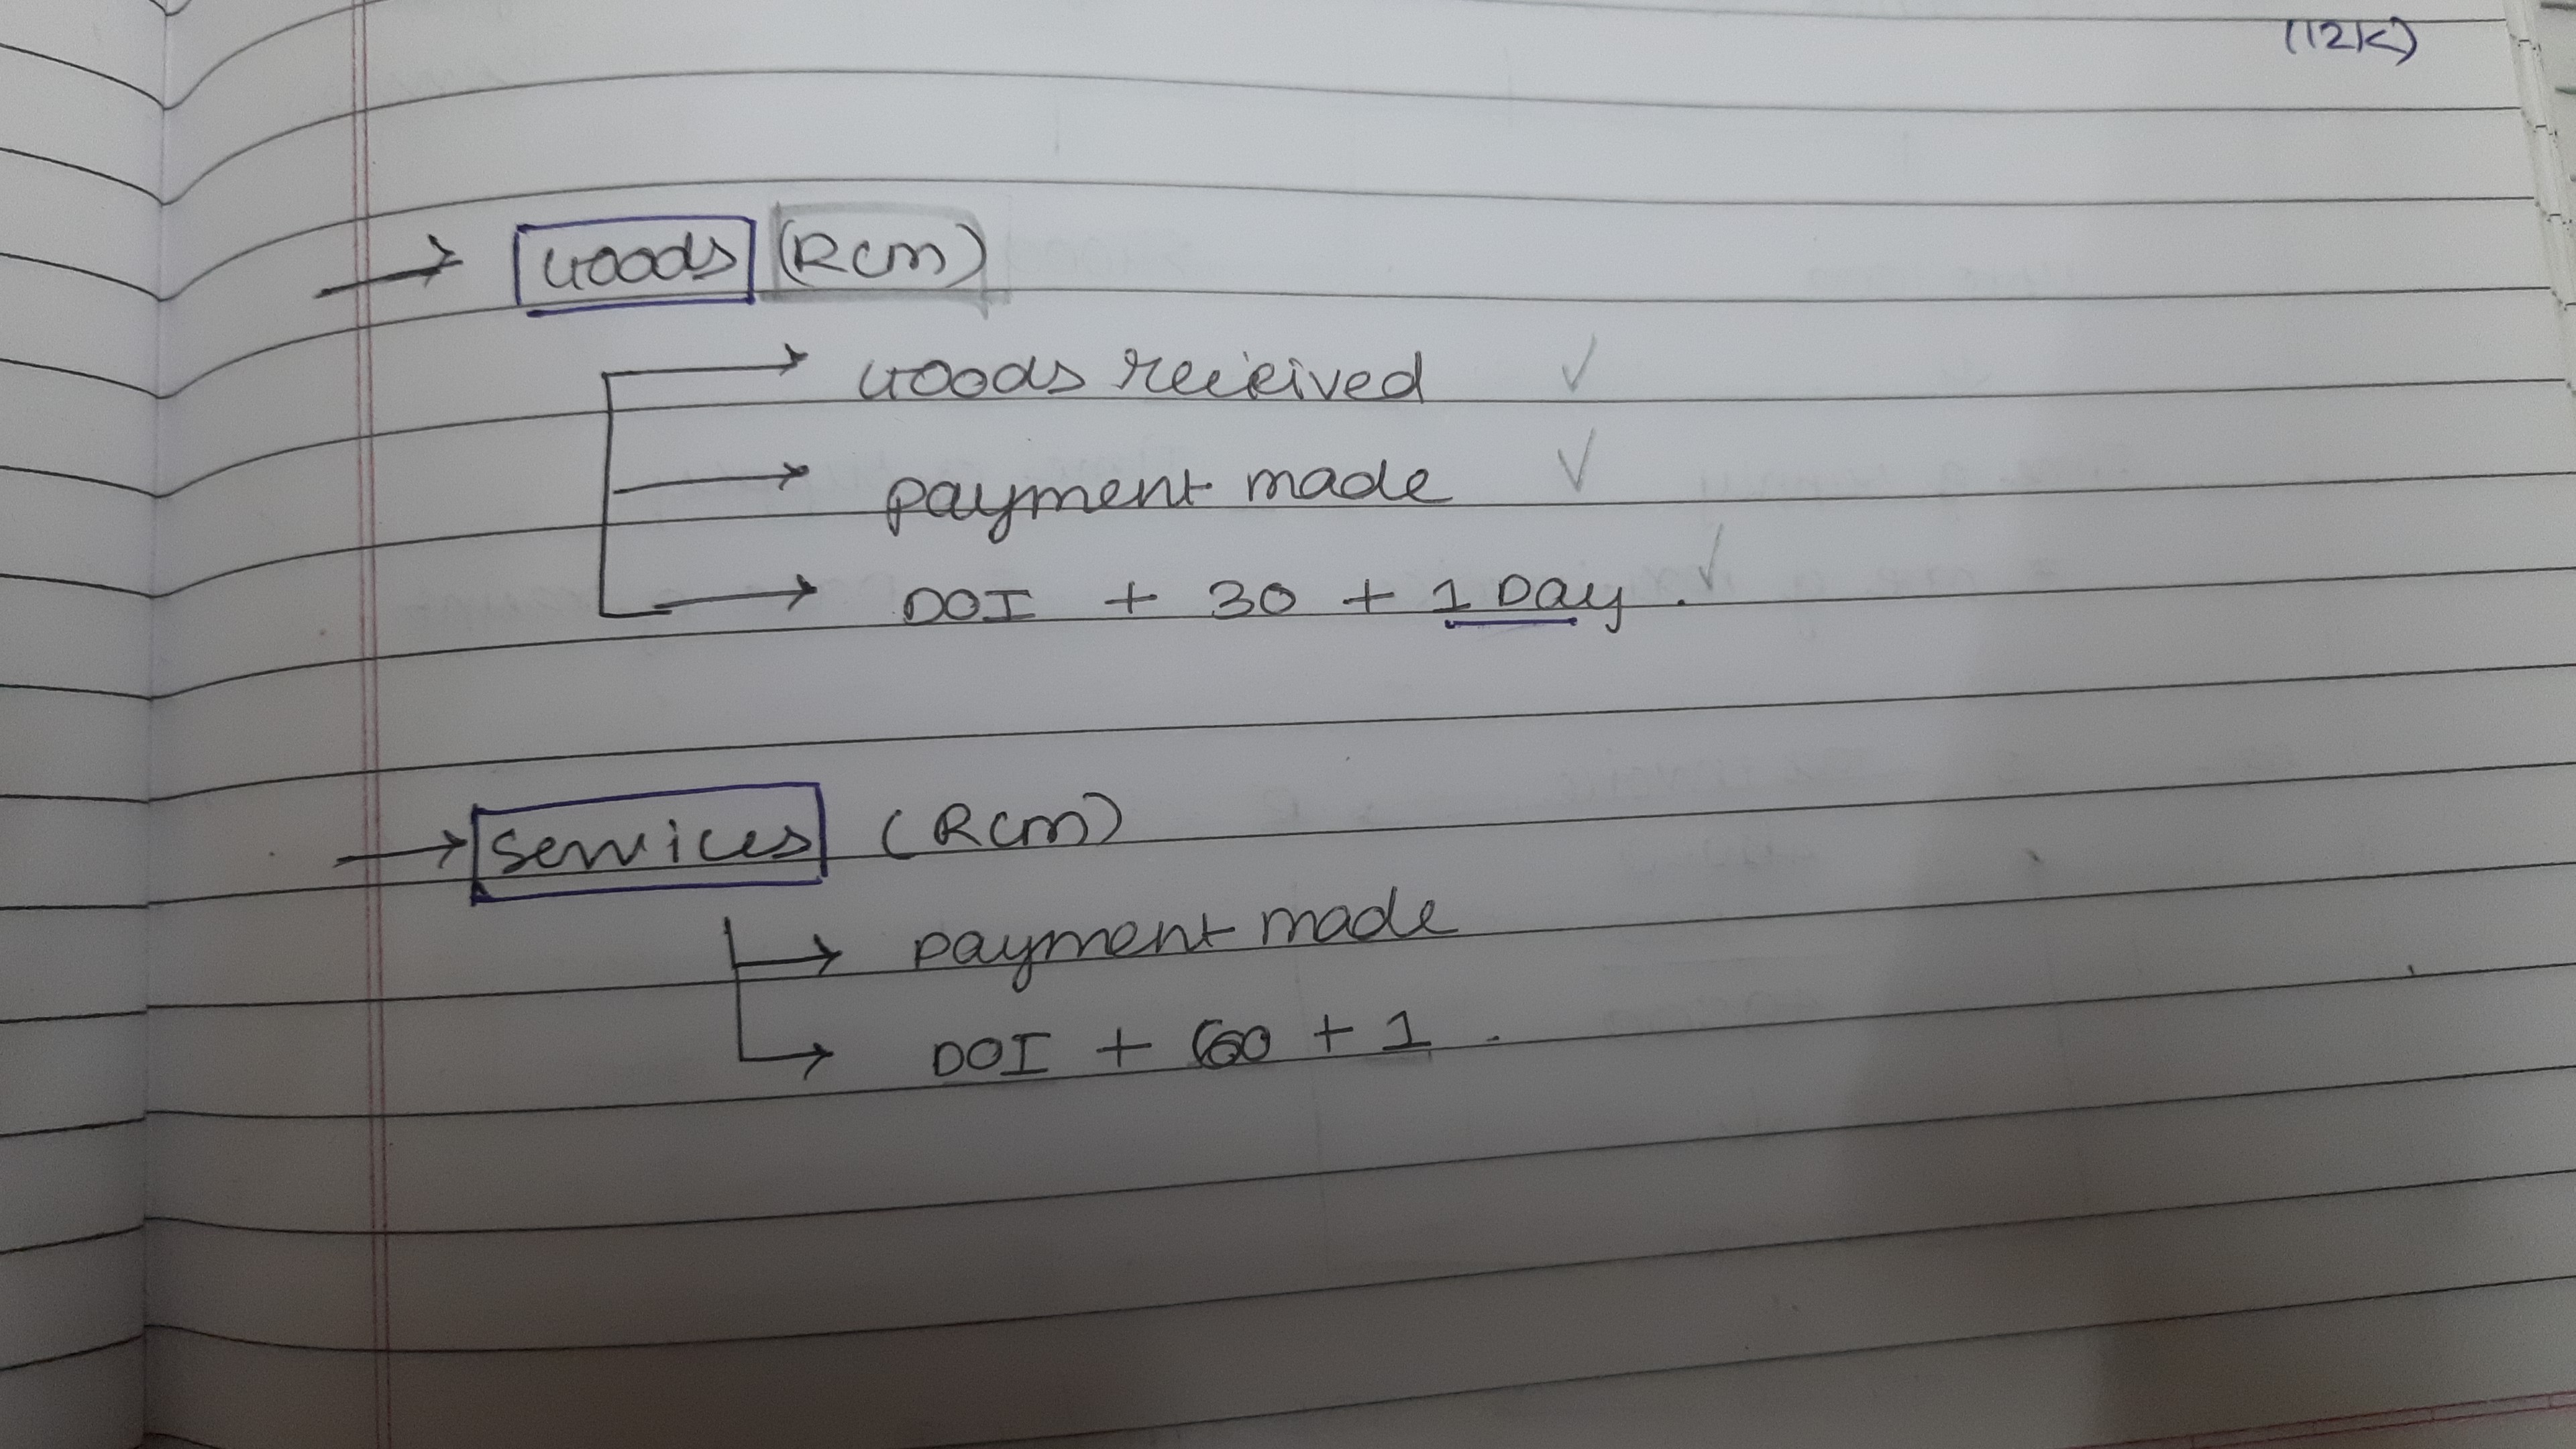 (12K)
→ Goods (RCM)
→ Goods received ✓
→ payment made ✓
→ DOI + 30 + 1 Day . ✓
→ Services (RCM)
→ payment made
→ DOI + 60 + 1 .